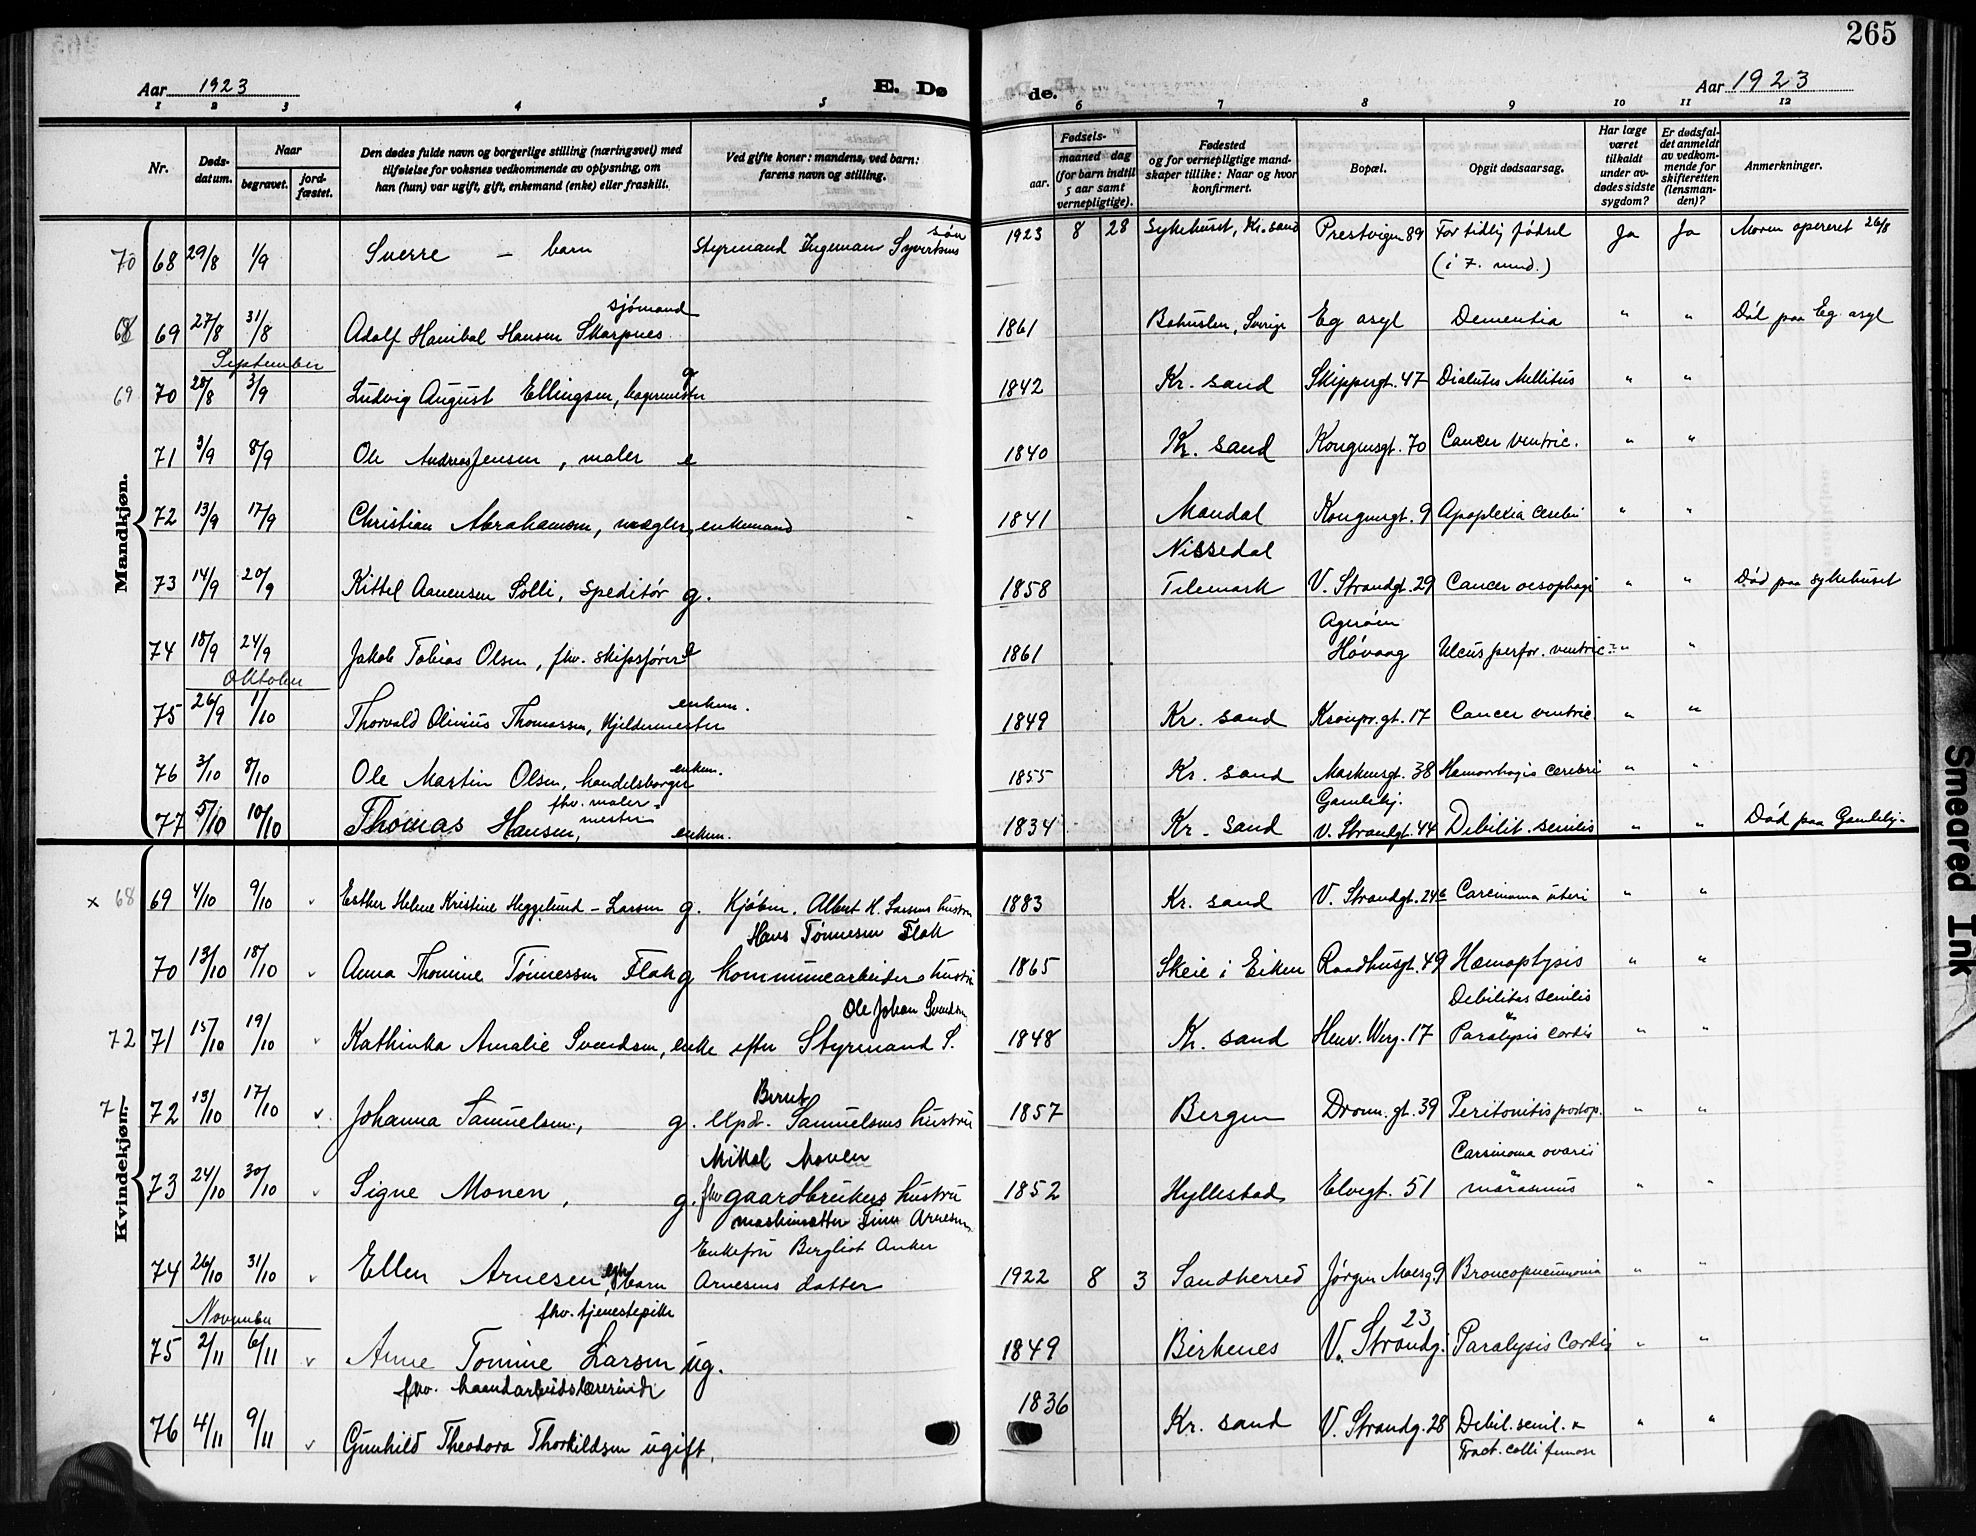 265
Aar 1923
E. Dø
de.
Aar 1923
1 2 3 4 5 6 7 8 9 10 11 12
Nr.
Døds-
datum.
Naar
begravet.
jord-
fæstet.
Den dødes fulde navn og borgerlige stilling (næringsvei) med
tilføielse for voksnes vedkommende av oplysning, om
han (hun) var ugift, gift, enkemand (enke) eller fraskilt.
Ved gifte koner: mandens, ved barn:
farens navn og stilling.
Fødsels-
aar.
maaned dag
(for barn indtil
5 aar samt
vernepligtige).
Fødested
og for vernepligtige mand-
skaper tillike: Naar og hvor
konfirmert.
Bopæl.
Opgit dødsaarsag.
Har læge
været
tilkaldt
under av-
dødes sidste
sygdom?
Er dødsfal-
det anmeldt
av vedkom-
mende for
skifteretten
(lensman-
den)?
Anmerkninger.
Mandkjøn.
70 68 29/8 1/9 Sverre — barn Styrmand Ingeman Syvertsens søn 1923 8 28 Sykehuset, Kr. sand Prestvigen 89 For tidlig fødsel Ja Ja Moren opereret 26/8
(i 7. mnd.)
sjómand
68 69 27/8 31/8 Adolf Hanibal Hansen Skarpnes 1861 Bohuslen, Sverige Eg asyl Dementia " " Død paa Eg asyl
September
69 70 28/8 3/9 Ludvig August Ellingsen, bagermester g 1842 Kr. sand Skippergt. 47 Diabetes Mellitus " "
71 3/9 8/9 Ole Andreas Jensen, maler e 1840 Kr. sand Kongensgt. 70 Cancer ventric. " "
72 13/9 17/9 Christian Abrahamsen, mægler, enkemand 1841 Mandal Kongensgt. 9 Apoplexia cerebri " "
Nissedal
73 14/9 20/9 Kittel Aanensen Solli, speditór g. 1858 Telemark V. Strandgt. 29 Cancer oesophagi " " Død paa sykehuset
Agerøen
74 18/9 24/9 Jakob Tobias Olsen, fhv. skipsfører e 1861 Høvaag Ulcus perfor. ventric. " "
Oktober
75 26/9 1/10 Thorvald Olinius Thomassen, Kjeldermester enkem. 1849 Kr. sand Kronpr.gt. 17 Cancer ventric " "
76 3/10 8/10 Ole Martin Olsen, handelsborger enkem. 1855 Kr. sand Markensgt. 38 Hæmorrhagia cerebri " "
fhv. maler- Gamlehj.
77 5/10 10/10 Thomas Hansen, mester enkem. 1834 Kr. sand V. Strandgt. 44 Debilit. senilis " " Død paa Gamlehj.
Kvindekjøn.
x 68 69 4/10 9/10 v Esther Helene Kristine Heggelund - Larsen g. Kjøbm. Albert H. Larsens hustru 1883 Kr. sand V. Strandgt. 24b Carcinoma uteri " "
Hans Tønnesen Flak
70 13/10 18/10 v Anna Thomine Tönnessen Flak g kommunearbeiders hustru 1865 Skeie i Eiken Raadhusgt. 49 Hæmoptysis " "
Ole Johan Svendsen Debilitas senilis
72 71 15/10 19/10 v Kathinka Amalie Svendsen, enke efter Styrmand S. 1848 Kr. sand Henr. Werg. 17 Paralysis cordis " "
Bernt
7 72 13/10 17/10 v. Johanna Samuelsen, g. expd. Samuelsens hustru 1857 Bergen Dronn. gt. 39 Peritonitis postop. " "
Mikal Monen Carsinoma ovarii
73 24/10 30/10 v Signe Monen, g. fhv gaardbrukers hustru 1852 Hyllestad Elvegt. 51 marasmus " "
maskinsetter Finn Arnesen
Enkefru Bergliot Anker
74 26/10 31/10 v Ellen Arnesen, barn Arnesens datter 1922 8 3 Sandherred Jørgen Moesg. 9 Broncopneumonia " "
November fhv. tjenestepike 23
75 2/11 6/11 v Anne Tomine Larsen ug. 1849 Birkenes V. Strandg. Paralysis Cordis " "
fhv. haandarbeidslærerinde
76 4/11 9/11 v Gunhild Theodora Thorkildsen ugift. 1836 Kr. sand V. Strandg. 28 Debil. senil. & " "
Fract. colli femoris
Smeared Ink